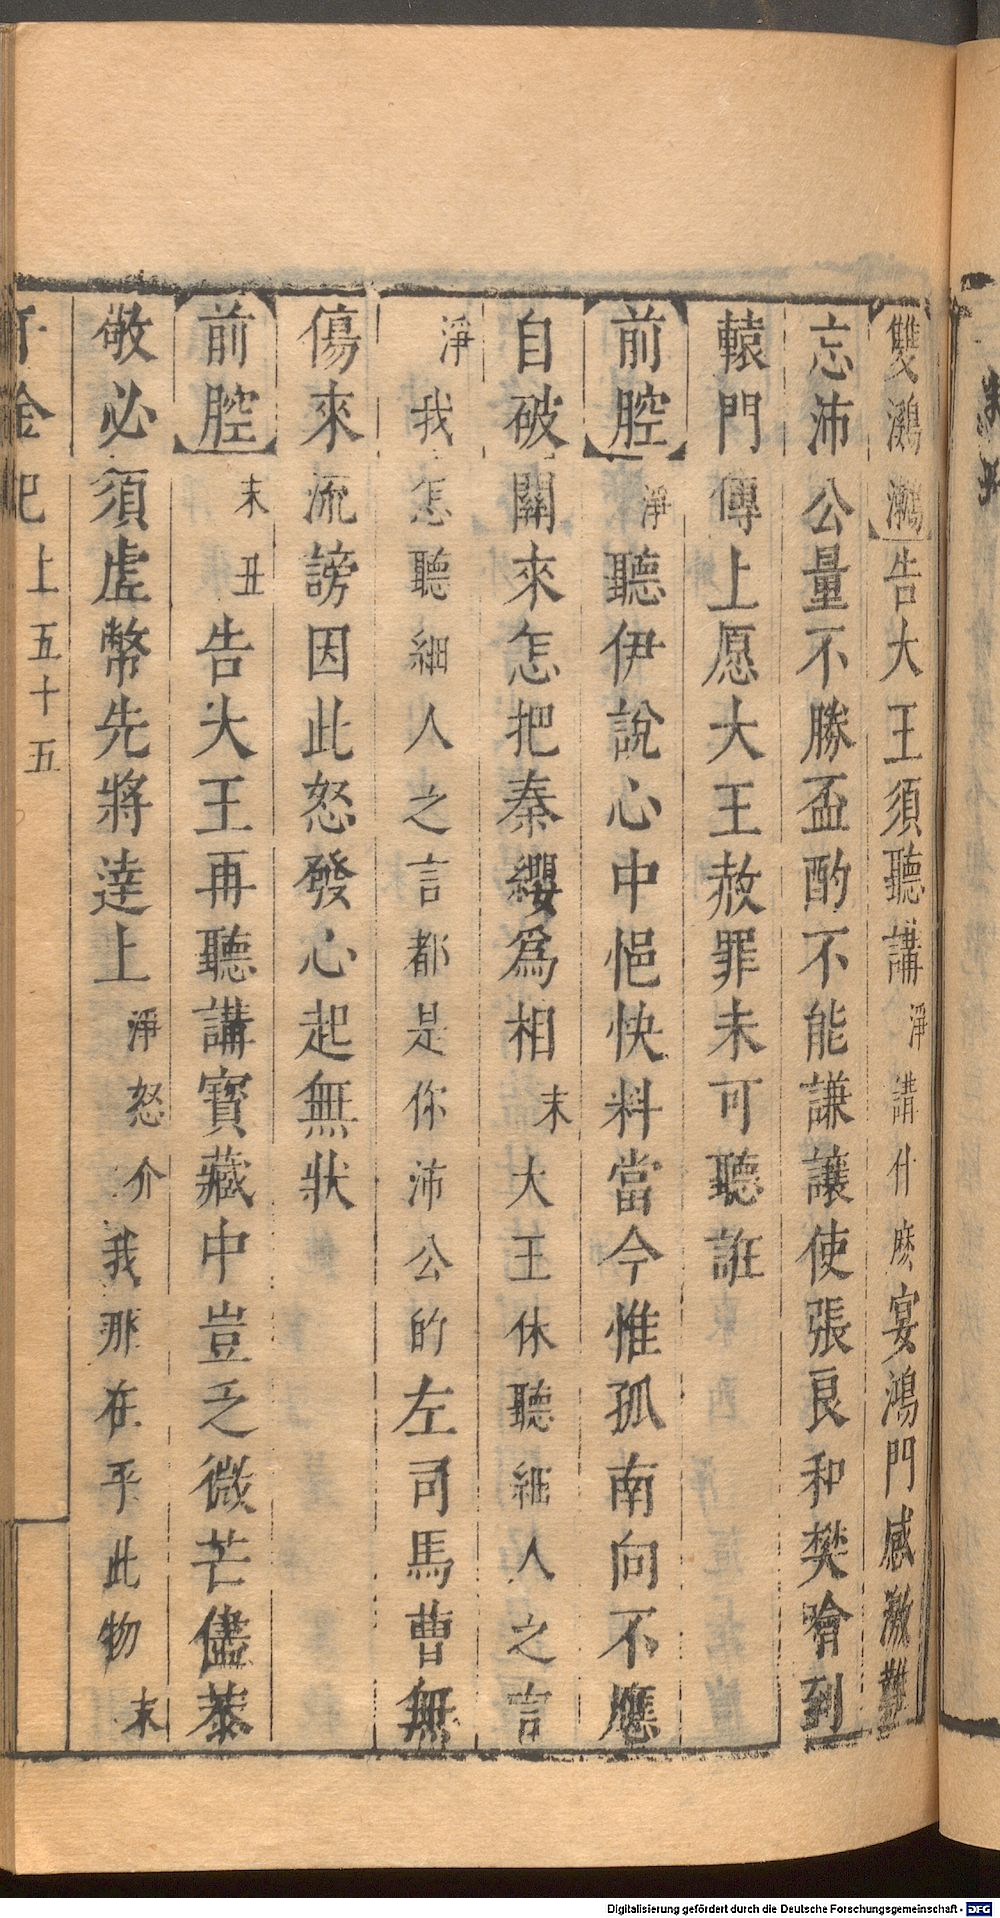 雙鸂鷘告大王須聽講淨講什麽宴鴻門感激難
忘沛公量不勝盃酌不能謙讓使張良和樊噲到
轅門傳上愿大王赦罪未可聽誑
前腔淨聽伊說心中悒怏料當今惟孤南向不應
自破關來怎把秦纓爲相末大王休聽細人之言
淨我怎聽細人之言都是你沛公的左司馬曹無
傷來流謗因此怒發心起無狀
前腔末丑告大王再聽講寳藏中豈乏微芒儘恭
敬必須虗幣先將達上淨怒介我那在乎此物末
千金記上五十五
Digitalisierung gefördert durch die Deutsche Forschungsgemeinschaft - DFG